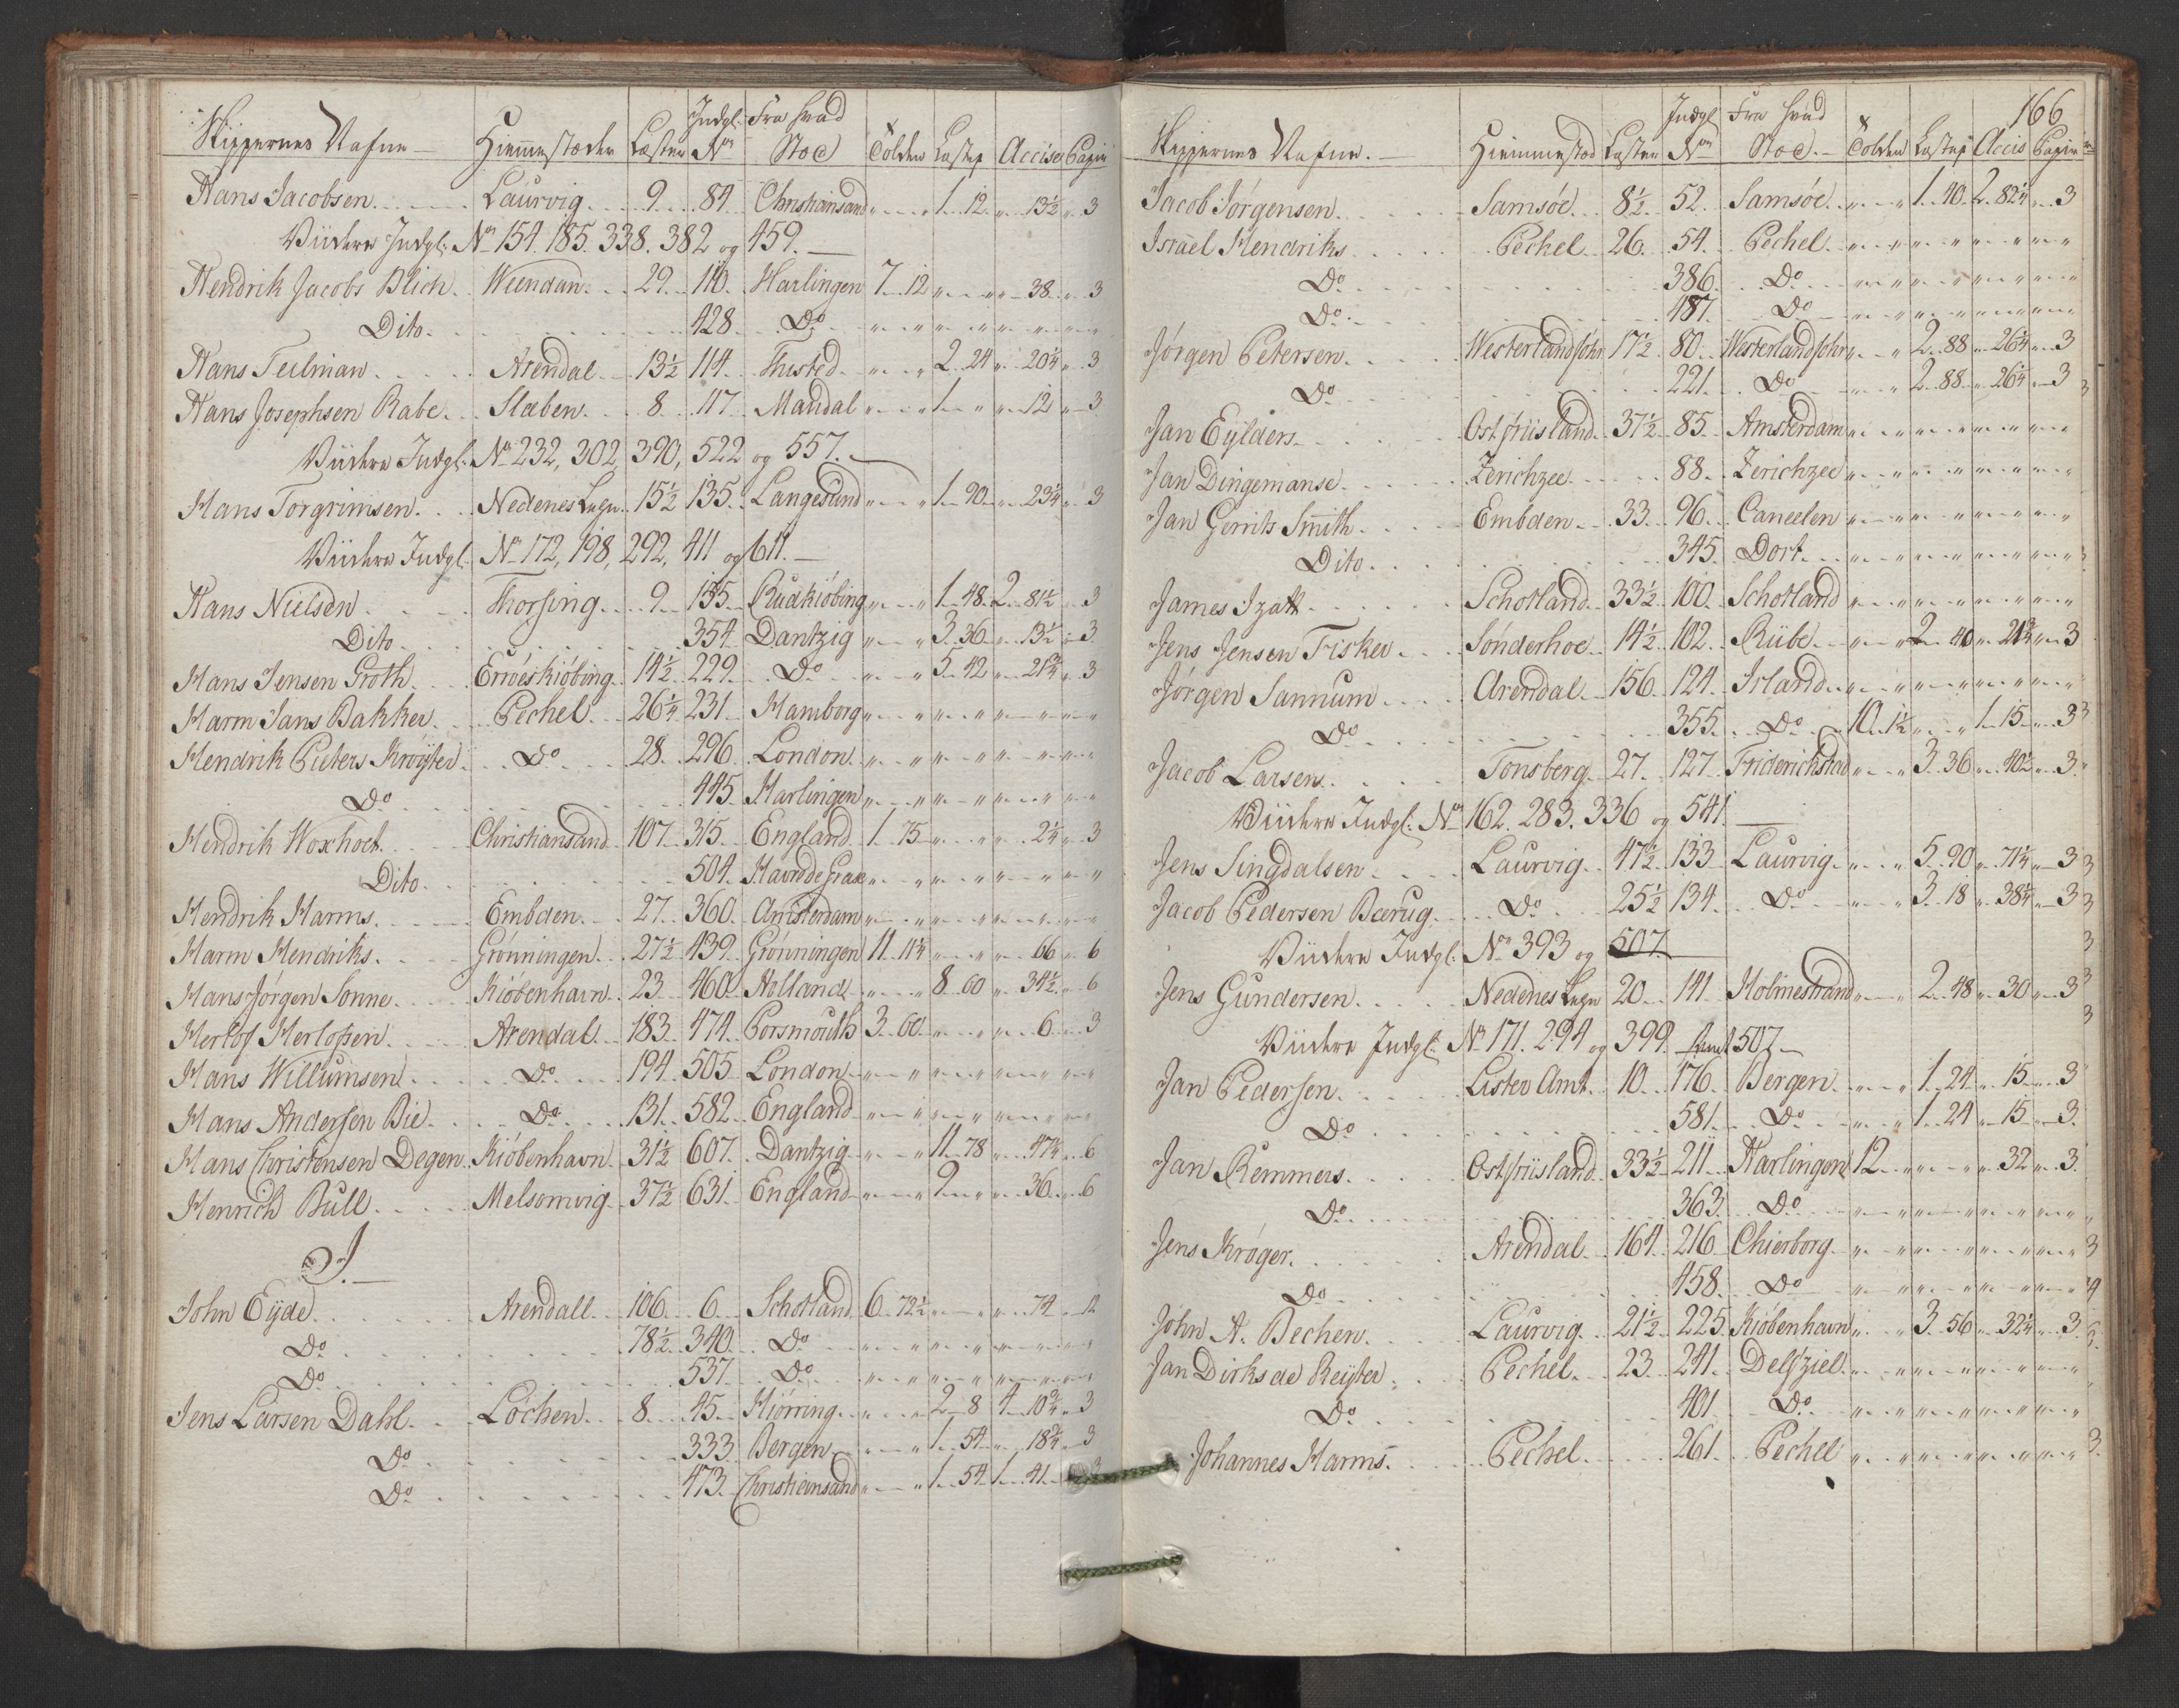 Skippernes Nafne Hiemmestæder Læster Indgl. No Fra hvad Stæd Tolden Lastep Accise Papir
Hans Jacobsen Laurvig 9 84 Christiansand " " 1 12 " 13½ " 3
Viidere Indgl. No 154. 185. 338. 382 og 459.
Hendrik Jacobs Blich Weendam 29 110 Harlingen 7 12 " " " 38 " 3
Dito 428 Do " " " " " " " "
Hans Teilman Arendal 13½ 114 Thisted " " 2 24 " 20¼ " 3
Hans Josephsen Rabe Slæben 8 117 Mandal " " 1 " " 12 " 3
Viidere Indgl. No 232, 302, 390, 522 og 557.
Hans Torgrimsen Nedenes Lehn 15½ 135 Langesund " " 1 90 " 23¼ " 3
Viidere Indgl. No 172, 198, 292, 411 og 611.
Hans Nielsen Thorsing 9 155 Rudkiøbing " " 1 48 2 81½ " 3
Dito 354 Dantzig " " 3 36 " 13½ " 3
Hans Jensen Groth Erröeskiöbing 14½ 229 Do " " 5 42 " 21¾ " 3
Harm Jans Bakker Pechel 26¼ 231 Hamborg " " " " " " " "
Hendrik Pieters Kröyter Do 28 296 London " " " " " " " "
Do 445 Harlingen " " " " " " " "
Hendrik Woxholt Christiansand 107 315 England 1 75 " " " 2¼ " 3
Dito 504 Havre de Grace " " " " " " " "
Hendrik Harms Embden 27 360 Amsterdam " " " " " " " "
Harm Hendriks Grönningen 27½ 439 Grönningen 11 11¼ " " " 66 " 6
Hans Jørgen Sonne Kiöbenhavn 23 460 Holland " " 8 60 " 34½ " 6
Herlof Herlofsen Arendal 183 474 Porsmouth 3 60 " " " 6 " 3
Hans Willumsen Do 194 505 London " " " " " " " "
Hans Andersen Bie Do 131 582 England " " " " " " " "
Hans Christensen Degen Kiöbenhavn 31½ 607 Dantzig " " 11 78 " 47¼ " 6
Henrich Bull Melsomvig 37½ 631 England " " 9 " " 36 " 6
J.
John Eyde Arendall 106 6 Schotland 6 72½ " " " 74 " 12
Do 78½ 340 Do " " " " " " " "
Do 537 Do " " " " " " " "
Jens Larsen Dahl Löchen 8 45 Hiörring " " 2 8 4 10¾ " 3
Do 333 Bergen " " 1 54 " 18¾ " 3
Do 473 Christiansand " " 1 54 1 41 " 3
166
Skippernes Nafne Hiemmestæd Læster Indgl No Fra hvad Stæd Tolden Lastep Accis Papir
Jacob Jørgensen Samsöe 8½ 52 Samsöe " " 1 40 2 82¼ " 3
Israel Hendriks Pechel 26 54 Pechel " " " " " " " "
Do 386 Do " " " " " " " "
Do 487 Do " " " " " " " "
Jørgen Petersen Westerlandföhr 17½ 80 Westerlandföhr " " 2 88 " 26¼ " 3
Do 221 Do " " 2 88 " 26¼ " 3
Jan Eylders Ostfriisland 37½ 85 Amsterdam " " " " " " " "
Jan Dingemanse Zerichzee 88 Zerichzee " " " " " " " "
Jan Gerrits Smith Embden 33 96 Caneelen " " " " " " " "
Dito 345 Dort " " " " " " " "
James Izatt Schotland 33½ 100 Schotland " " " " " " " "
Jens Jensen Fisker Sönderhoe 14½ 102 Riibe " " 2 40 " 21¾ " 3
Jørgen Sannum Arendal 156 124 Irland " " " " " " " "
Do 355 Do 10 1½ " " 1 15 " 3
Jacob Larsen Tonsberg 27 127 Friderichstad " " 3 36 " 40½ " 3
Viidere Indgl. No 162. 283. 336 og 541.
Jens Singdalsen Laurvig 47½ 133 Laurvig " " 5 90 " 71¼ " 3
Jacob Pedersen Bærug Do 25½ 134 Do " " 3 18 " 38¼ " 3
Viidere Indgl. No 393 og 507
Jens Gundersen Nedenes Lehn 20 141 Holmestrand " " 2 48 " 30 " 3
Viidere Indgl. No 171. 294 og 399. samt 507
Jan Pedersen Lister Amt 10 176 Bergen " " 1 24 " 15 " 3
Do 581 Do " " 1 24 " 15 " 3
Jan Remmers Ostfriisland 33½ 211 Harlingen 12 " " " " 32 " 3
Do 363 Do " " " " " " " "
Jens Krøger Arendal 164 216 Chierborg " " " " " " " "
Do 458 Do " " " " " " " "
John A. Becher Laurvig 21½ 225 Kiöbenhavn " " 3 56 " 32¼ " 3
Jan Dirks de Reijter Pechel 23 241 Delfziel " " " " " " " "
Do 401 Do " " " " " " " "
Johannes Harms Pechel 261 Pechel " " " " " " " "